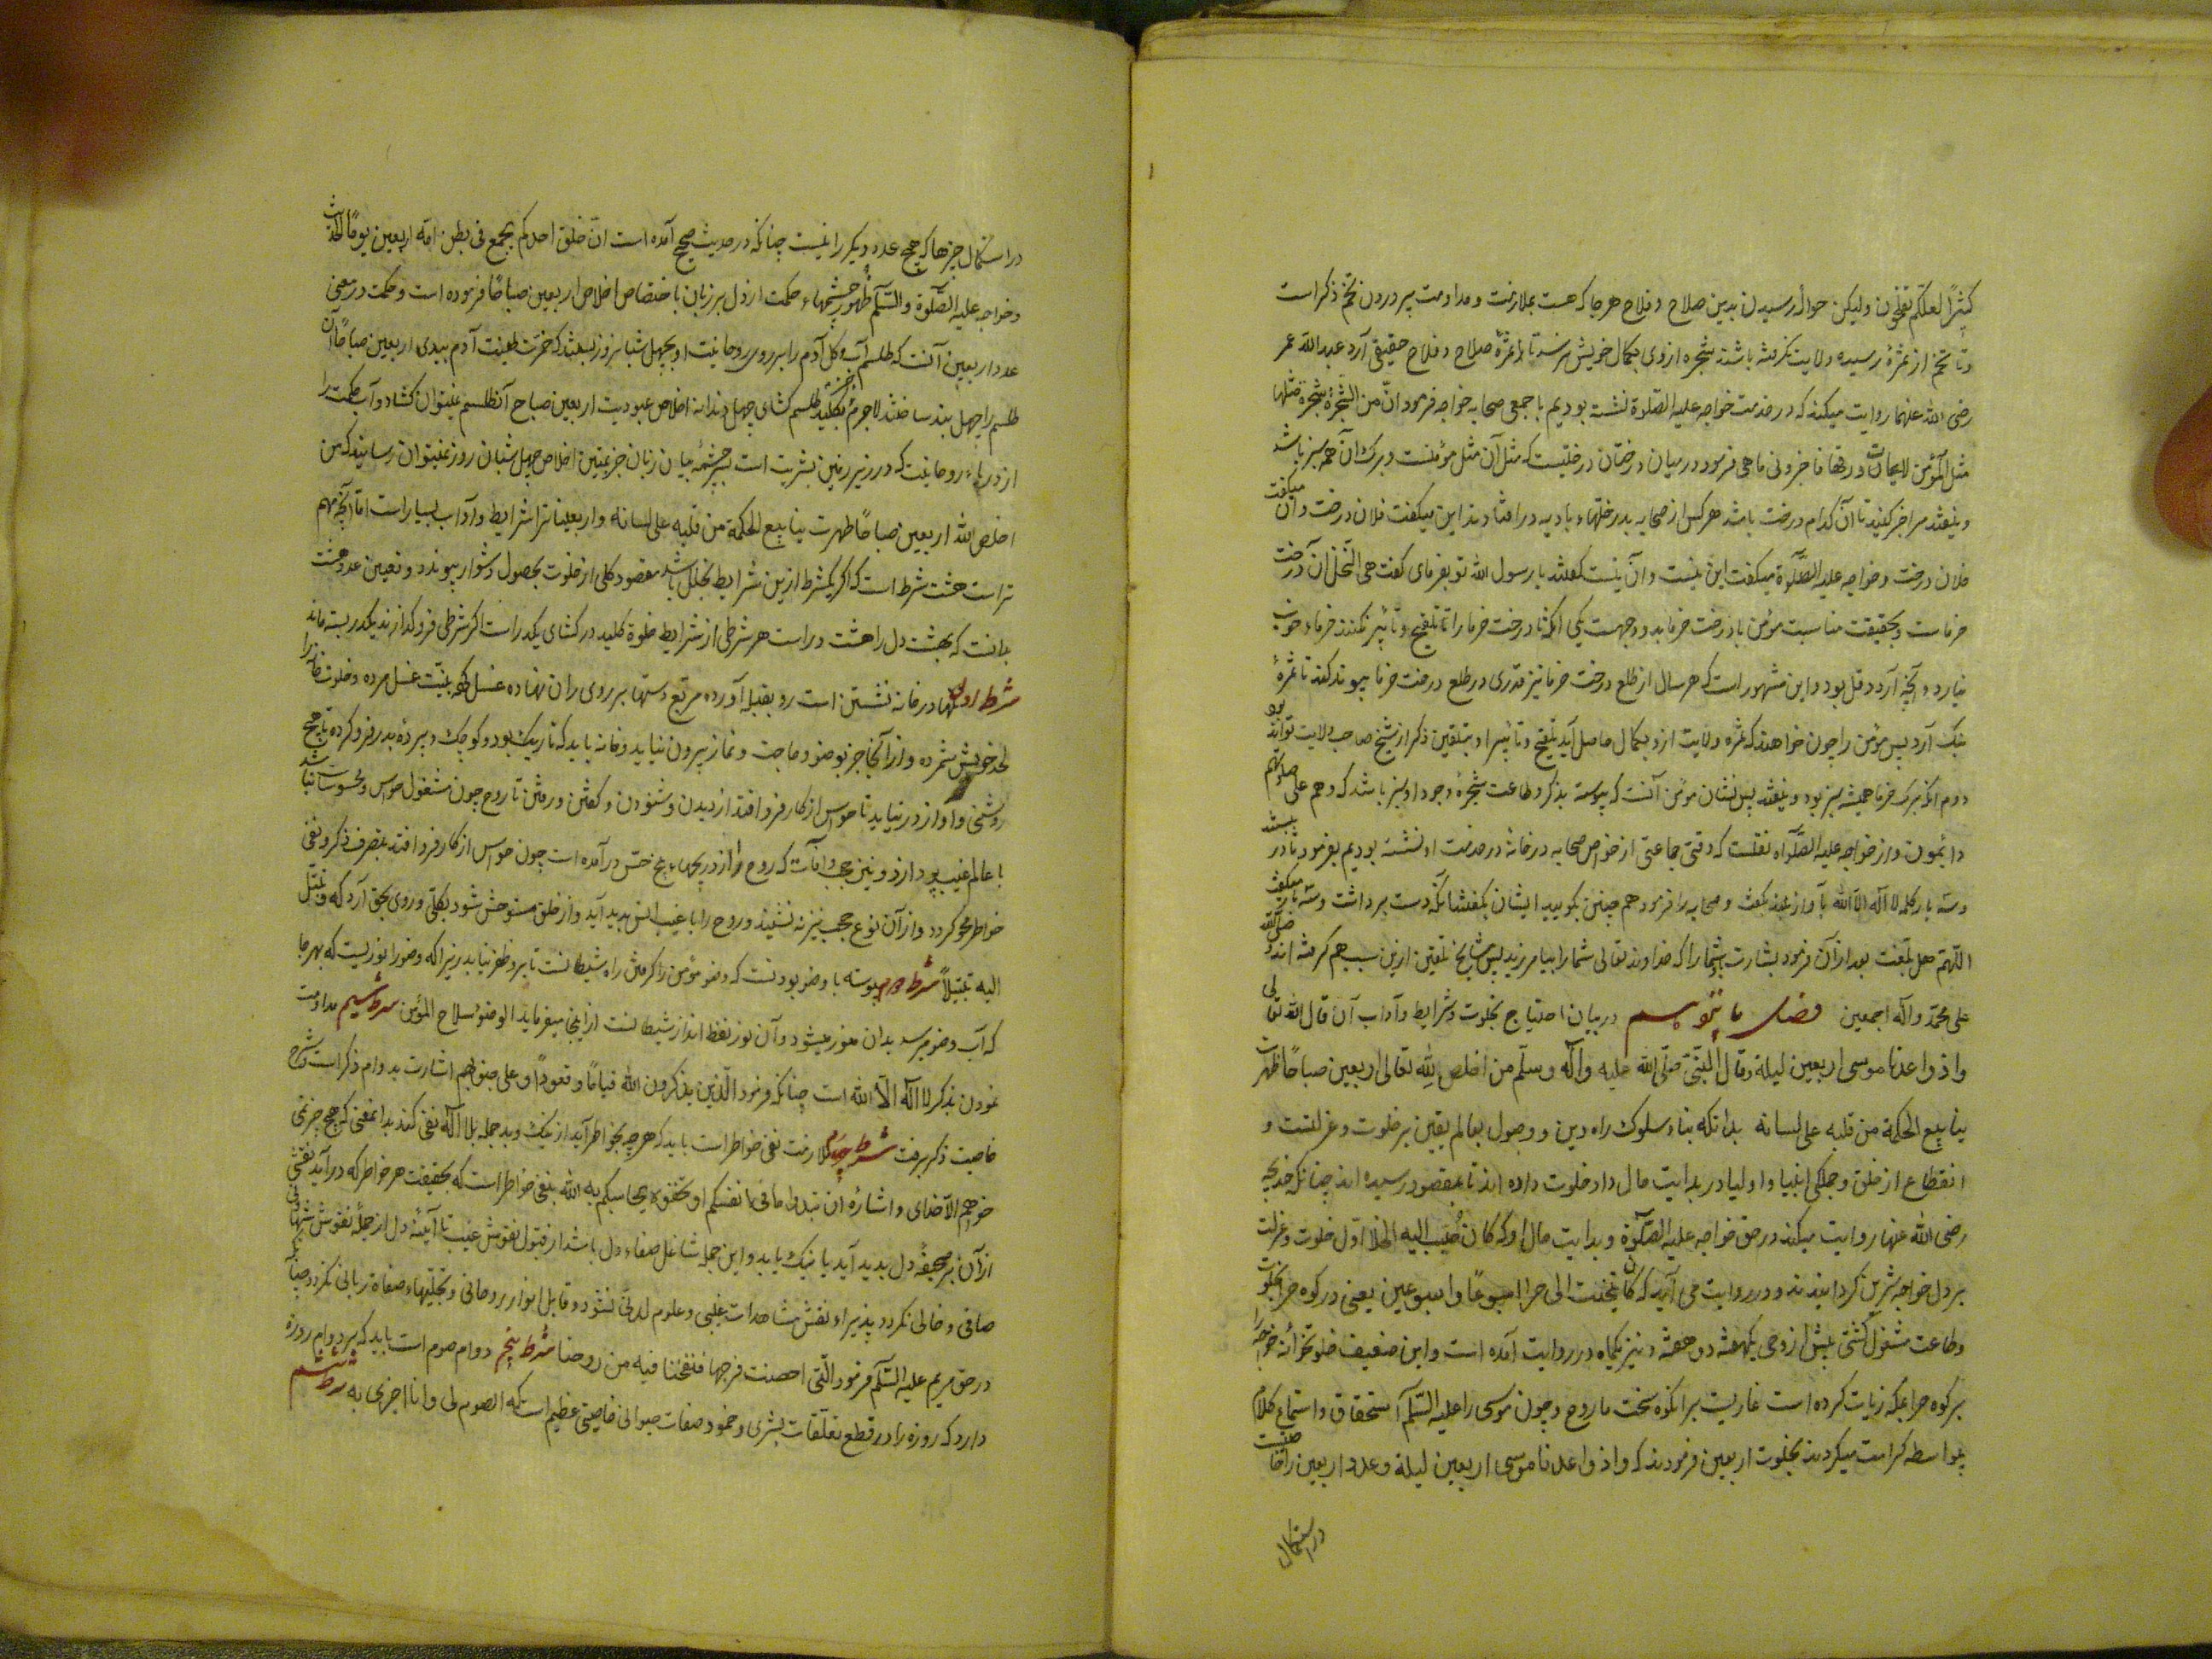 کثیرًا لعلکم تفلحون ولیکن حوالهٔ رسیدن بدین صلاح و فلاح هر جا که هست بملازمت و مداومت پروردن تخم ذکر است
و تا تخم از ثمرهٔ رسیده ولایت نگرفته باشند شجره ازوی بکمال خویش نرسد تا ثمرهٔ صلاح و فلاح حقیقی آرد عبدالله عمر
رضی الله عنهما روایت میکند که در خدمت خواجه علیه الصلوة نشسته بودیم با جمعی صحابه خواجه فرمود انّ من الشجرة شجرة مثلها
مثل المؤمن لایتحات ورقها فاخبرونی ما هی فرمود در میان درختان درختیست که مثل آن مثل مؤمنست و برک آن همه سبز باشد
و نیفتد مرا خبر کنید تا آن کدام درخت باشد هر کس از صحابه بدرختهاء بادیه در افتادند این میکفت فلان درخت و آن میکفت
فلان درخت و خواجه علیه الصلوة میکفت این نیست و آن نیست کفتند یا رسول الله تو بفرمای کفت هی النخل آن درخت
خرماست و بحقیقت مناسبت مؤمن با درخت خرما بدو وجهست یکی آنکه تا درخت خرما را تلقیح و تأبیر نکنند خرماء خوب
نیارد و آنچه آرد دقل بود و این مشهور است که هر سال از طلع درخت خرما نیز قدری در طلع درخت خرما پیوند کنند تا ثمرهٔ
نیک آرد پس مؤمن را چون خواهند که ثمره ولایت ازو بکمال حاصل آید تلقیح و تأبیر او بتلقین ذکر از شیخ صاحب ولایت تواند بود
دوم آنکه برک خرما همیشه سبز بود و نیفتد پس نشان مؤمن آنست که پیوسته بذکر و طاعت شجرهٔ وجود او سبز باشد که و هم علی صلوتهم
دایمون و از خواجه علیه الصلوة نقلست که وقتی جماعتی از خواص صحابه در خانهٔ در خدمت او نشسته بودیم بفرمود تا در ببستند
و سه بار کلمه لا اله الا الله بآواز بلند بکفت و صحابه را فرمود هم چنین بکویید ایشان بکفتند آنکه دست برداشت و سه بار میکفت
اللهم هل بلغت بعد از آن فرمود بشارت شما را که خداوند تعالی شما را بیامرزید پس مشایخ تلقین ازین سبب هم کرفته اند و صلی الله
علی محمد و آله اجمعین فصل در بیان احتیاج بخلوت و شرایط و آداب آن قال الله تعالی
واذ واعدنا موسی اربعین لیلة و قال النبی صلی الله علیه وآله وسلم من اخلص لله تعالی اربعین صباحًا ظهرت
ینابیع الحکمة من قلبه علی لسانه بدانکه بناء سلوک راه دین و وصول بعالم یقین بر خلوت و عزلتست و
انقطاع از خلق و جملکی انبیا و اولیا در بدایت حال داد خلوت داده اند تا بمقصود رسیده اند چنانکه خدیجه
رضی الله عنها روایت میکند در حق خواجه علیه الصلوة و بدایت حال او که کان حُبّب الیه الخلا اوّل خلوت و عزلت
بر دل خواجه شیرین کردانیدند و در روایت می آید که کان یتحنث الی حرا اسبوعًا و اسبوعین یعنی در کوه حرا بخلوت
و طاعت مشغول کشتی پیش از وحی یکهفته دو هفته و نیز یکماه در روایت آمده است و این ضعیف خلوتخانهٔ خواجه را
بر کوه حرا بمکه زیارت کرده است غاریست بران کوه سخت با روح و چون موسی را علیه السلم استحقاق و استماع کلام
بواسطه کرامت میکردند بخلوت اربعین فرمودند که واذ واعدنا موسی اربعین لیلة و عدد اربعین را خاصیت
در استکمال
در استکمال چیزها که هیچ عدد دیگر را نیست چنانکه در حدیث صحیح آمده است ان خلق احدکم یجمع فی بطن امه اربعین یومًا الحدیث
و خواجه علیه الصلوة والسلم ظهور چشمهاء حکمت از دل بر زبان باختصاص اخلاص اربعین صباحًا فرموده است و حکمت در معنی
عدد اربعین آنست که طلسم آب و کل آدم را بر روی روحانیت او بچهل شبانروز بستند که خمرت طینت آدم بیدی اربعین صباحًا آن
طلسم را چهل بند ساختند لاجرم جز بکلید طلسم کشای چهل دندانه اخلاص عبودیت اربعین صباح آن طلسم نمیتوان کشاد و آب حکمت را
از دریاء روحانیت که در زیر زمین بشریت است بچشمه بیان زبان جز بمتین اخلاص چهل شبان روز نمیتوان رسانید که من
اخلص لله اربعین صباحًا ظهرت ینابیع الحکمة من قلبه علی لسانه و اربعینات را شرایط و آداب بسیار است اما آنچه مهم
تر است هشت شرط است که اکر یکشرط ازین شرایط بخلل باشد مقصود کلی از خلوت بحصول دشوار پیوندد و تعیین عدد هشت
بدانست که بهشت دل را هشت در است هر شرطی از شرایط خلوة کلید در کشای یکدر است اکر شرطی فرو کذارند یکدر بسته ماند
شرط اول تنها در خانه نشستن است رو بقبله آورده مربع دستها بر روی ران نهاده غسل کرده بنیّت غسل مرده و خلوت خانه را
لحد خویش شمرده و از آنجا جز بوضو و حاجت و نماز بیرون نیاید و خانه باید که تاریک بود و کوچک و پردهٔ بدر فرو کرده تا هیچ
روشنی و آواز در نیاید تا حواس از کار فرو افتد از دیدن و شنودن و کفتن و رفتن تا روح چون مشغول حواس و محسوسات نباشد
با عالم غیب پردازد و نیز حجب و آفات که روح را از دریچهاء پنج حس در آمده است چون حواس از کار فرو افتد بتصرف ذکر و نفی
خواطر محو کردد و از آن نوع حجب نیز نه نشیند و روح را با غیب انس پدید آید و از خلق مستوحش شود بکلی و روی بحق آرد که و تبتّل
الیه تبتیلاً شرط دوم پیوسته با وضو بودنست که وضو مؤمن را کرفتن راه شیطانست تا برو ظفر نیابد زیرا که وضو را نوریست که بهر جا
که آب وضو برسد بدان منور میشود و آن نور نفط انداز شیطانست از اینجا میفرماید الوضوء سلاح المؤمن شرط سیم مداومت
نمودن بذکر لا اله الا الله است چنانکه فرمود الذین یذکرون الله قیامًا و قعودًا و علی جنوبهم اشارت بدوام ذکر است و شرح
خاصیت ذکر برفت شرط چهارم ملازمت نفی خواطر است باید که هر چه بخواطر آید از نیک و بد جمله بلا اله نفی کند بدانمعنی که هیچ چیز نمی
خواهم الا خدای و اشارهٔ ان تبدوا ما فی انفسکم او تخفوه یحاسبکم به الله بنفی خواطر است که بحقیقت هر خواطر که در آید نقشی
از آن بر صحیفهٔ دل پدید آید یا نیک یا بد و این جمله شاغل صفاء دل باشد از قبول نقوش غیب تا آینهٔ دل از جملهٔ نقوش
صافی و خالی نکردد پذیراء نقش مشاهدات غیبی و علوم لدنّی نشود و قابل انوار روحانی و تجلیهاء صفاة ربانی نکردد چنانکه
در حق مریم علیه السلم فرمود التی احصنت فرجها فنفخنا فیه من روحنا شرط پنجم دوام صوم است باید که بر دوام روزه
دارد که روزه را در قطع تعلقات بشری و خمود صفات حیوانی خاصیتی عظیم است که الصوم لی و انا اجزی به شرط ششم